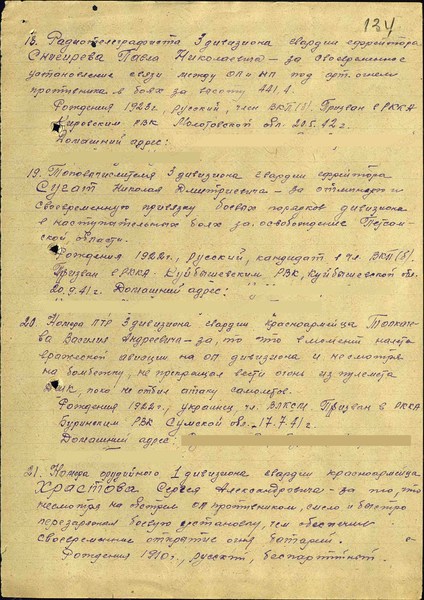 134
18. Радиотелеграфиста 3 дивизиона гвардии ефрейтора
Снигирева Павла Николаевича - за своевременное
установление связи между ОП и НП под арт. огнем
противника в боях за высоту 441.4.
Рождения 1923 г., русский, член ВКП(б). Призван в РККА
Кировским РВК Молотовской обл. 12 г.
Домашний адрес:
19. Топовычислителя 3 дивизиона гвардии ефрейтора
Сугат Николая Дмитриевича - за отличную и
своевременную привязку боевых порядков дивизиона
в наступательных боях за освобождение Петсам-
ской области.
Рождения 1922 г., русский, кандидат в чл. ВКП(б).
Призван в РККА - Куйбышевским РВК, Куйбышевской обл.
20.9.41 г. Домашний адрес:
20. Номера ПТР 3 дивизиона гвардии красноармейца
ва Василия Андреевича - за то что в момент налета
вражеской авиации на ОП дивизиона и несмотря
на бомбежку, не прекращал вести огонь из пулемета
ДШК, пока не отбил атаку самолетов.
Рождения 1922 г., украинец, чл. ВЛКСМ. Призван в РККА
Буринским РВК Сумской обл. 17.7.41 г.
Домашний адрес:
21. Номера орудийного 1 дивизиона гвардии красноармейца
Храстова Сергея Александровича - за то, что
несмотря на обстрел ОП противником, смело и быстро
перезаряжал боевую установку, чем обеспечил
своевременное открытие огня батареей.
Рождения 1910 г., русский, беспартийный.